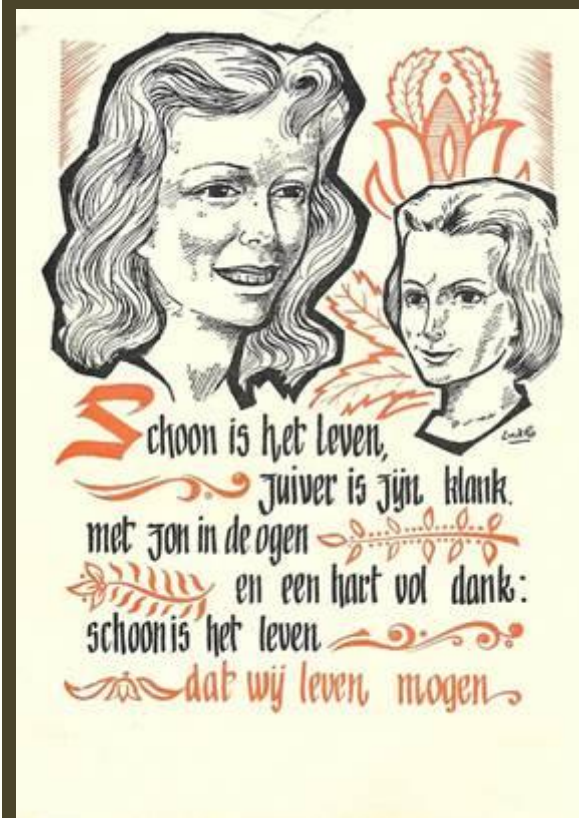 Schoon is het leven,
zuiver is zijn klank.
met zon in de ogen
en een hart vol dank:
schoon is het leven
dat wij leven mogen